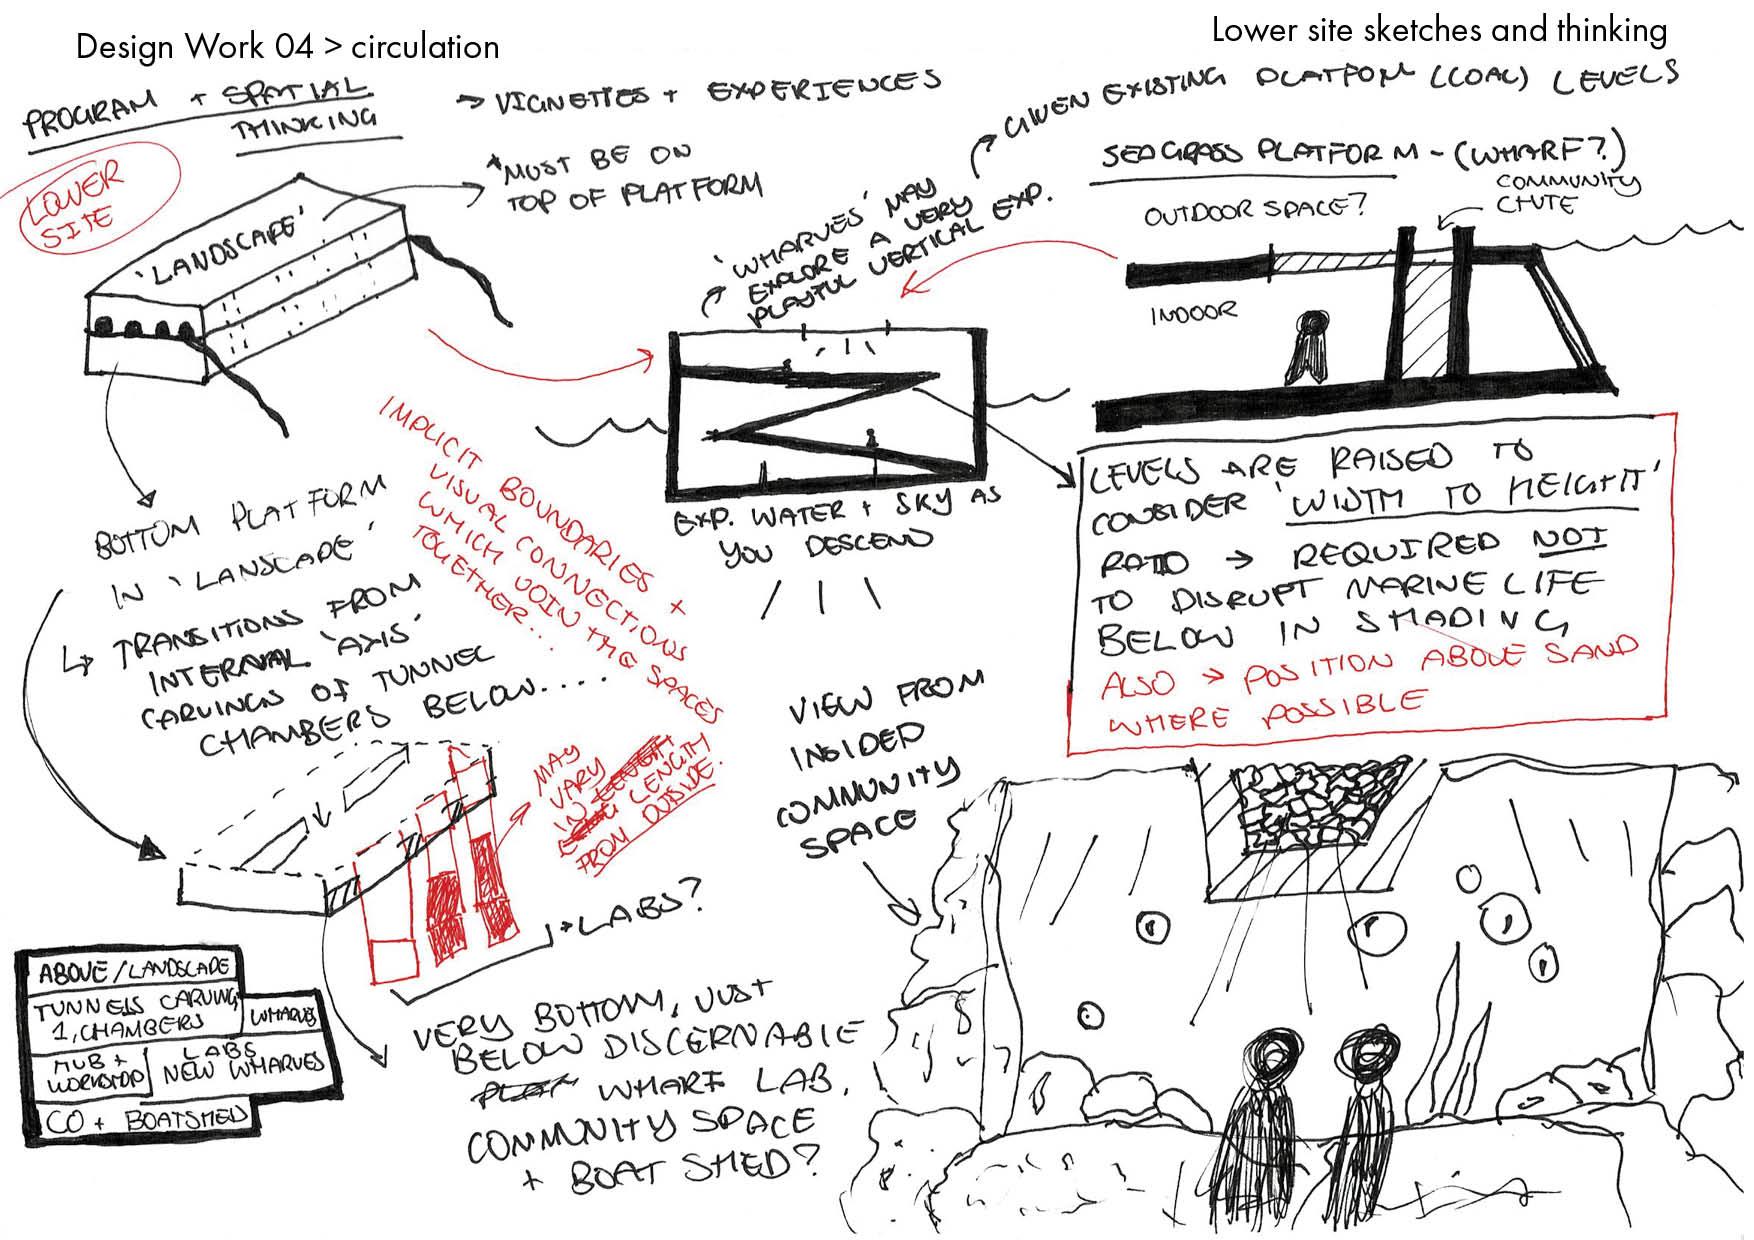 Design Work 04 > circulation
Lower site sketches and thinking
PROGRAM + SPATIAL
THINKING
→ VIGNETTES + EXPERIENCES
LOWER
SITE
*MUST BE ON
TOP OF PLATFORM
'LANDSCAPE'
GIVEN EXISTING PLATFORM (COAL) LEVELS
SEAGRASS PLATFORM - (WHARF?)
COMMUNITY
CHUTE
OUTDOOR SPACE?
INDOOR
'WHARVES' MAY
EXPLORE A VERY
PLAYFUL VERTICAL EXP.
EXP. WATER + SKY AS
YOU DESCEND
LEVELS ARE RAISED TO
CONSIDER 'WIDTH TO HEIGHT'
RATIO → REQUIRED NOT
TO DISRUPT MARINE LIFE
BELOW IN SHADING
ALSO → POSITION ABOVE SAND
WHERE POSSIBLE
IMPLICIT BOUNDARIES +
VISUAL CONNECTIONS
WHICH JOIN THE SPACES
TOGETHER...
BOTTOM PLATFORM
IN 'LANSCAPE'
↳ TRANSITIONS FROM
INTERNAL 'AXIS'
CARVINGS OF TUNNEL
CHAMBERS BELOW....
MAY
VARY
IN LENGTH
FROM OUTSIDE.
→ LABS?
VIEW FROM
INSIDED
COMMUNITY
SPACE
VERY BOTTOM, JUST
BELOW DISCERNABLE
PLAT WHARF LAB,
COMMUNITY SPACE
+ BOAT SHED?
ABOVE/LANDSCAPE
TUNNELS CARVING
1, CHAMBERS
WHARVES
HUB +
WORKSHOP
LABS
NEW WHARVES
CO + BOATSHED